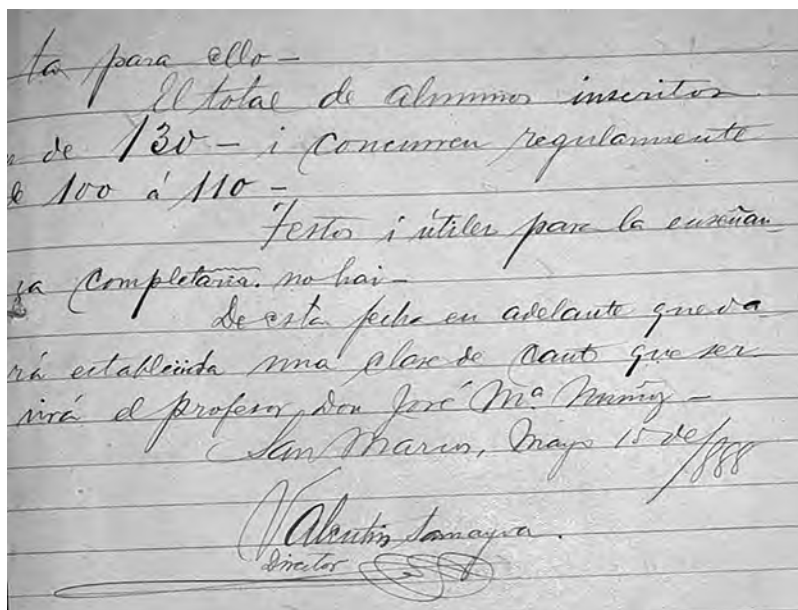 ta para ello—
El total de alumnos inscritos
de 130— i concurren regularmente
de 100 á 110—
Testos i útiles para la enseñan-
za completaria. no hai—
De esta fecha en adelante queda
rá establecida una clase de canto que ser
virá el profesor don José Mª Muñiz—
San Marcos, Mayo 15 de/888
Valentin Samayoa.
Director